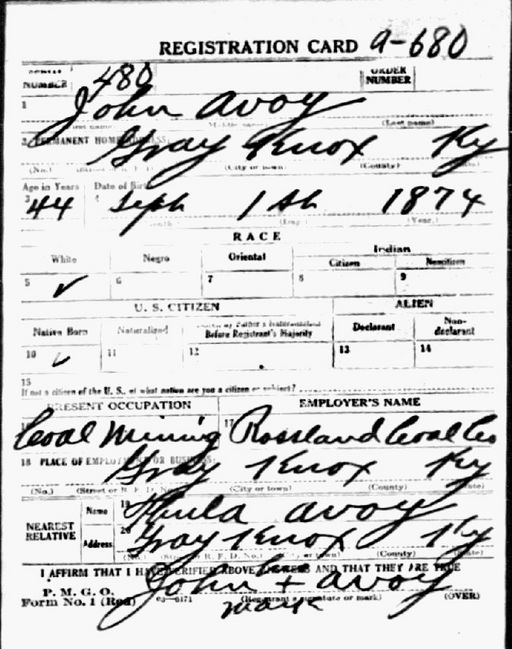 REGISTRATION CARD A-680
SERIAL NUMBER 480 ORDER NUMBER
1 John Avoy
(First name) (Middle name) (Last name)
2 PERMANENT HOME ADDRESS:
Gray Knox Ky
(No.) (City or town) (County) (State)
Age in Years Date of Birth
3 44 4 Sept 1st 1874
(Month) (Day) (Year)
RACE
White Negro Oriental Indian
Citizen Noncitizen
5 ✓ 6 7 8 9
U. S. CITIZEN ALIEN
Native Born Naturalized Citizen by Father's Naturalization Before Registrant's Majority Declarant Non-declarant
10 ✓ 11 12 13 14
15
If not a citizen of the U. S., of what nation are you a citizen or subject?
PRESENT OCCUPATION EMPLOYER'S NAME
16 Coal Mining 17 Rossland Coal Co
18 PLACE OF EMPLOYMENT OR BUSINESS:
Gray Knox Ky
(No.) (Street or R. F. D. No.) (City or town) (County) (State)
NEAREST RELATIVE Name 19 Avoy
Address 20 Gray Knox Ky
(No.) (Street or R. F. D. No.) (City or town) (County) (State)
I AFFIRM THAT I HAVE VERIFIED ABOVE ANSWERS AND THAT THEY ARE TRUE
P. M. G. O.
Form No. 1 (Red) 03—6171 John + Avoy
mark (Registrant's signature or mark) (OVER)